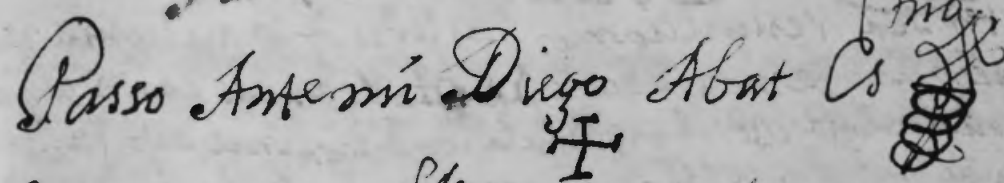 Passo Antemí Diego Abat Es